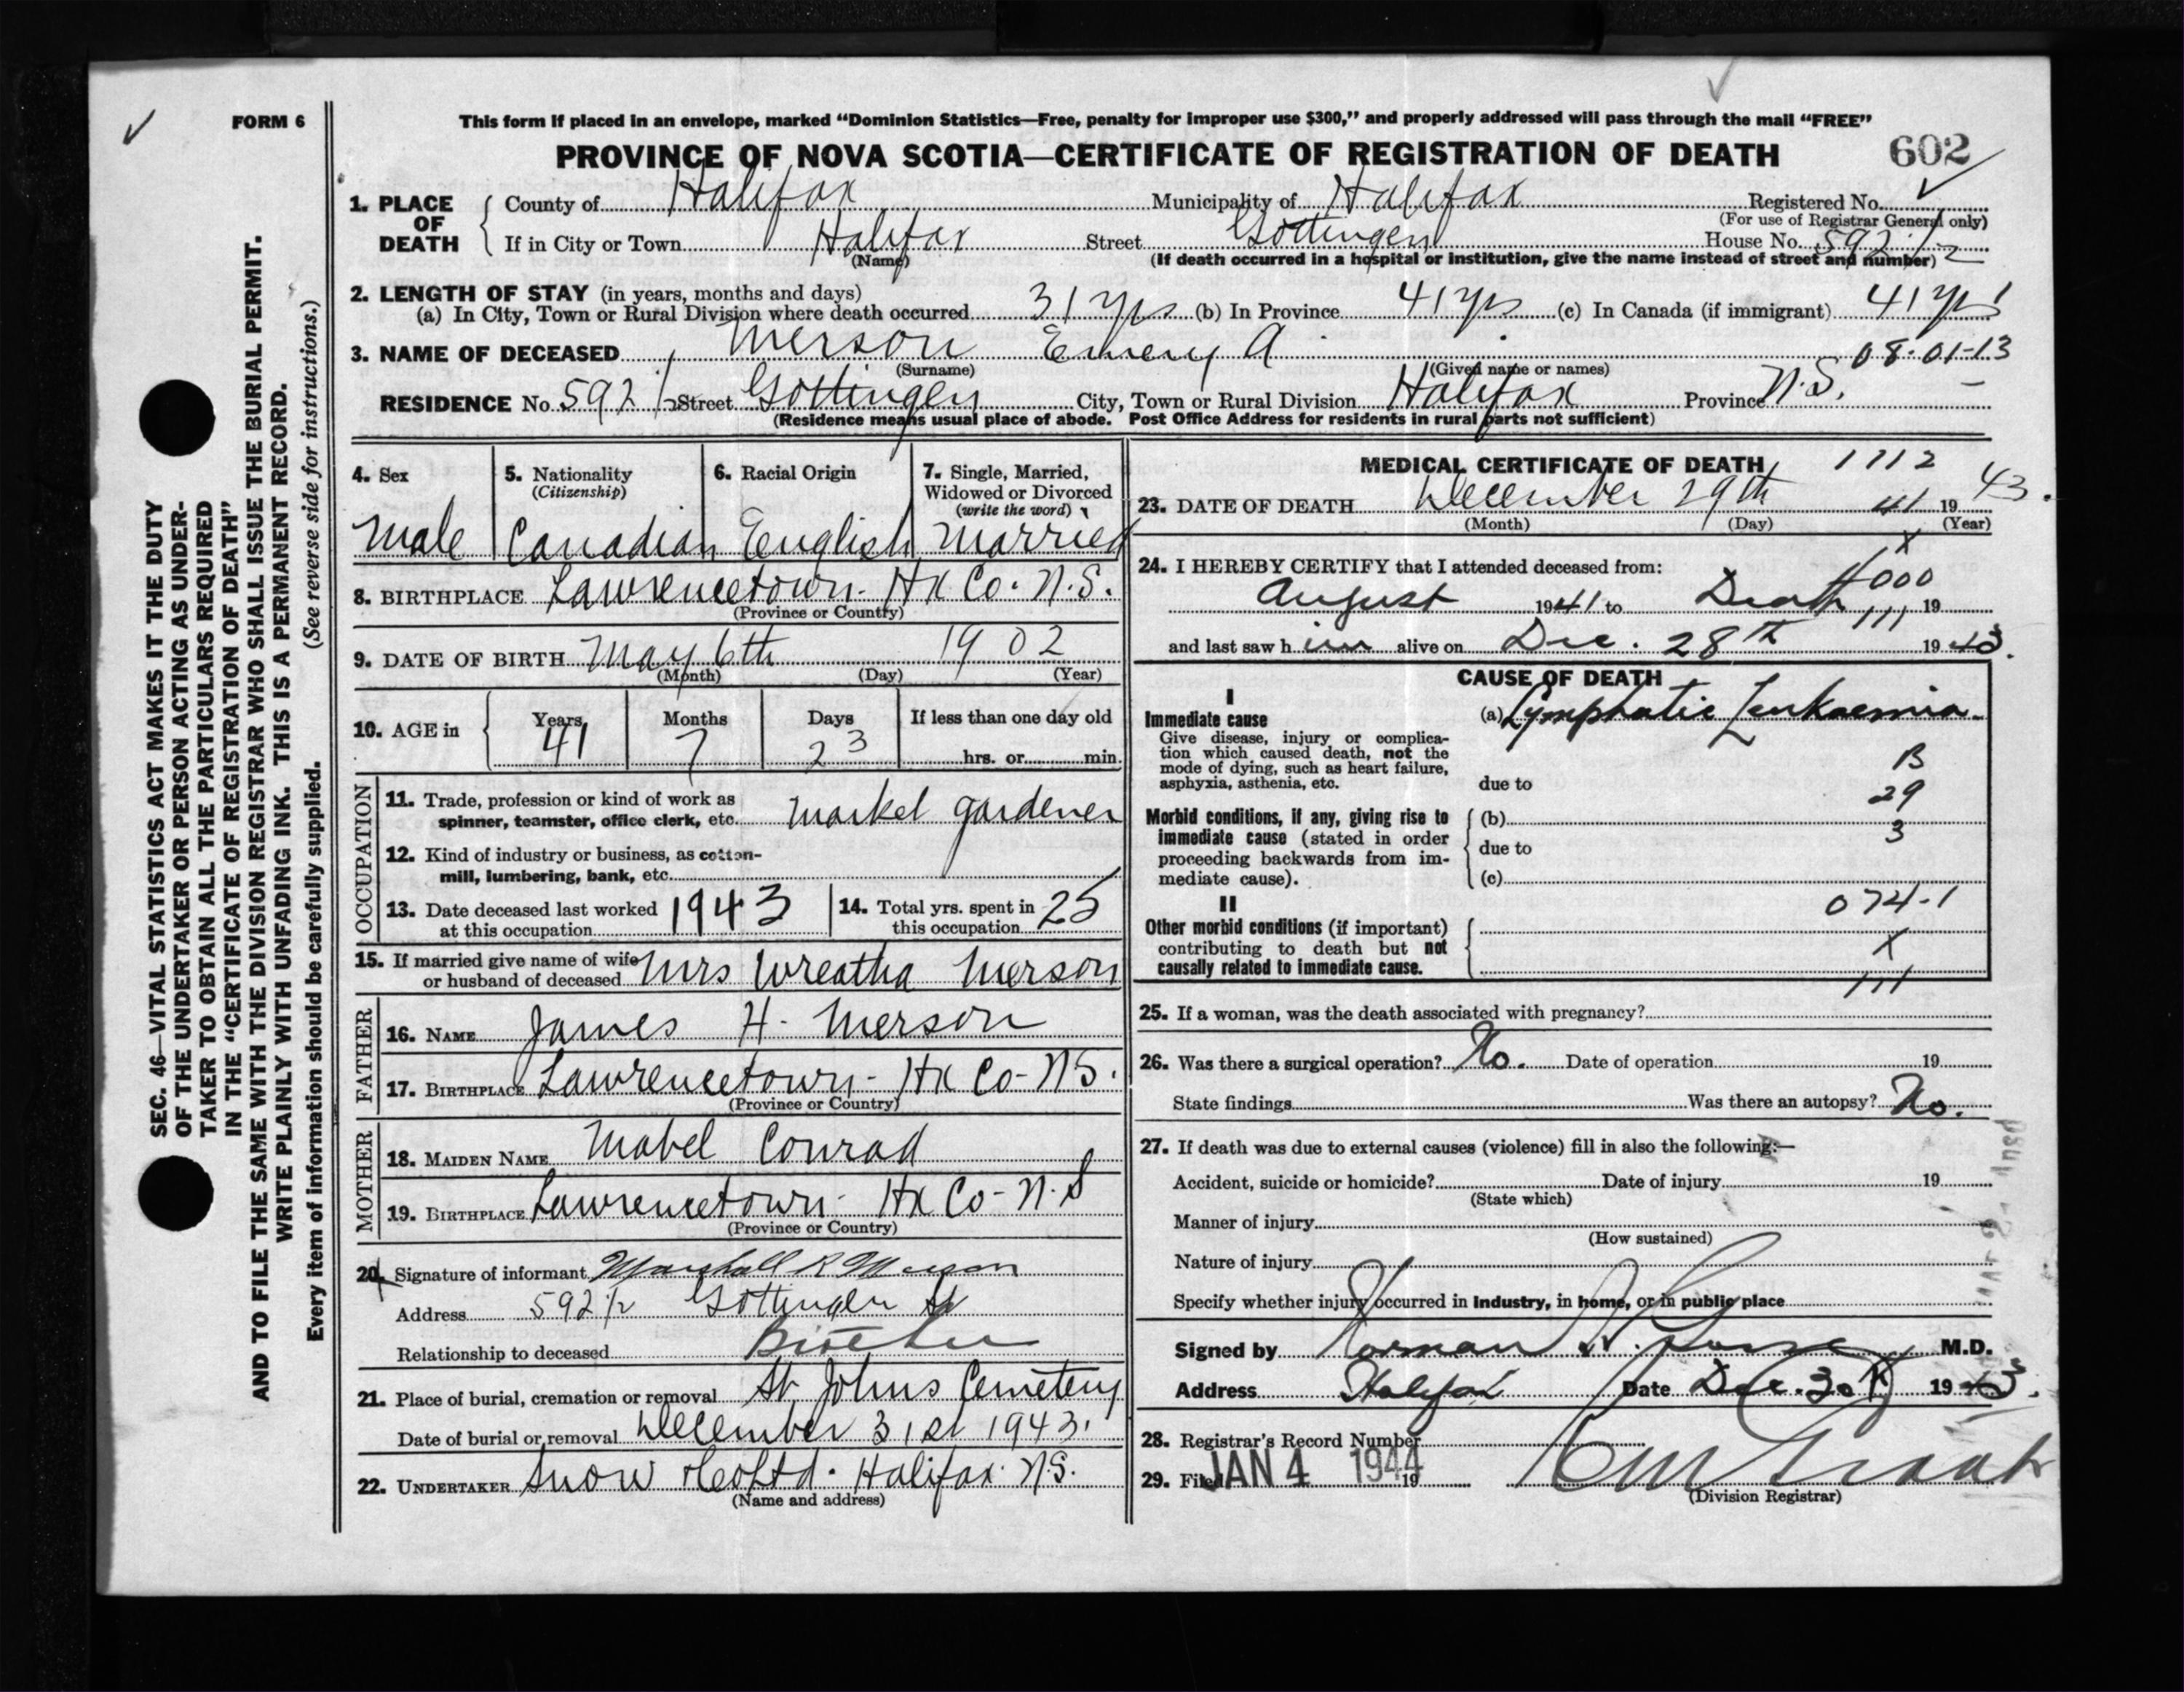 FORM 6
This form if placed in an envelope, marked "Dominion Statistics—Free, penalty for improper use $300," and properly addressed will pass through the mail "FREE"
PROVINCE OF NOVA SCOTIA—CERTIFICATE OF REGISTRATION OF DEATH
602
1. PLACE OF DEATH
County of Halifax Municipality of Halifax Registered No.
(For use of Registrar General only)
If in City or Town Halifax Street Gottingen House No. 592 1/2
(Name) (If death occurred in a hospital or institution, give the name instead of street and number)
2. LENGTH OF STAY (in years, months and days)
(a) In City, Town or Rural Division where death occurred 31 yrs (b) In Province 41 yrs (c) In Canada (if immigrant) 41 yrs
3. NAME OF DECEASED Merson Emery A 08-01-13
(Surname) (Given name or names)
RESIDENCE No. 592 1/2 Street Gottingen City, Town or Rural Division Halifax Province N.S.
(Residence means usual place of abode. Post Office Address for residents in rural parts not sufficient)
4. Sex
Male
5. Nationality
(Citizenship)
Canadian
6. Racial Origin
English
7. Single, Married,
Widowed or Divorced
(write the word)
Married
8. BIRTHPLACE Lawrencetown - Hx Co. N.S.
(Province or Country)
9. DATE OF BIRTH May 6th 1902
(Month) (Day) (Year)
10. AGE in
Years Months Days If less than one day old
41 7 23 hrs. or min.
OCCUPATION
11. Trade, profession or kind of work as
spinner, teamster, office clerk, etc. Market gardener
12. Kind of industry or business, as cotton-
mill, lumbering, bank, etc.
13. Date deceased last worked
at this occupation 1943
14. Total yrs. spent in
this occupation 25
15. If married give name of wife
or husband of deceased Mrs Wreatha Merson
FATHER
16. NAME James H. Merson
17. BIRTHPLACE Lawrencetown - Hx Co - N S.
(Province or Country)
MOTHER
18. MAIDEN NAME Mabel Conrad
19. BIRTHPLACE Lawrencetown - Hx Co - N.S
(Province or Country)
20. Signature of informant Marshall R Merson
Address 592 1/2 Gottingen St
Relationship to deceased Brother
21. Place of burial, cremation or removal St Johns Cemetery
Date of burial or removal December 31st 1943.
22. UNDERTAKER Snow & Co Ltd. Halifax N.S.
(Name and address)
MEDICAL CERTIFICATE OF DEATH 1112
23. DATE OF DEATH December 29th 19 43.
(Month) (Day) (Year)
24. I HEREBY CERTIFY that I attended deceased from:
X
4000
August 1941 to Death 19
111
and last saw h im alive on Dec. 28th 19 43.
CAUSE OF DEATH
I
Immediate cause
Give disease, injury or complica-
tion which caused death, not the
mode of dying, such as heart failure,
asphyxia, asthenia, etc.
(a) Lymphatic Leukaemia.
B
due to
29
Morbid conditions, if any, giving rise to
immediate cause (stated in order
proceeding backwards from im-
mediate cause).
(b)
3
due to
(c)
II
074-1
Other morbid conditions (if important)
contributing to death but not
causally related to immediate cause.
X
111
25. If a woman, was the death associated with pregnancy?
26. Was there a surgical operation? No. Date of operation 19
State findings Was there an autopsy? No.
27. If death was due to external causes (violence) fill in also the following:—
Accident, suicide or homicide? Date of injury 19
(State which)
Manner of injury
(How sustained)
Nature of injury
Specify whether injury occurred in industry, in home, or in public place
Signed by Norman M.D.
Address Halifax Date Dec. 30th 19 43.
28. Registrar's Record Number
29. Filed JAN 4 1944 19
(Division Registrar)
SEC. 46—VITAL STATISTICS ACT MAKES IT THE DUTY
OF THE UNDERTAKER OR PERSON ACTING AS UNDER-
TAKER TO OBTAIN ALL THE PARTICULARS REQUIRED
IN THE "CERTIFICATE OF REGISTRATION OF DEATH"
AND TO FILE THE SAME WITH THE DIVISION REGISTRAR WHO SHALL ISSUE THE BURIAL PERMIT.
WRITE PLAINLY WITH UNFADING INK. THIS IS A PERMANENT RECORD.
Every item of information should be carefully supplied. (See reverse side for instructions.)